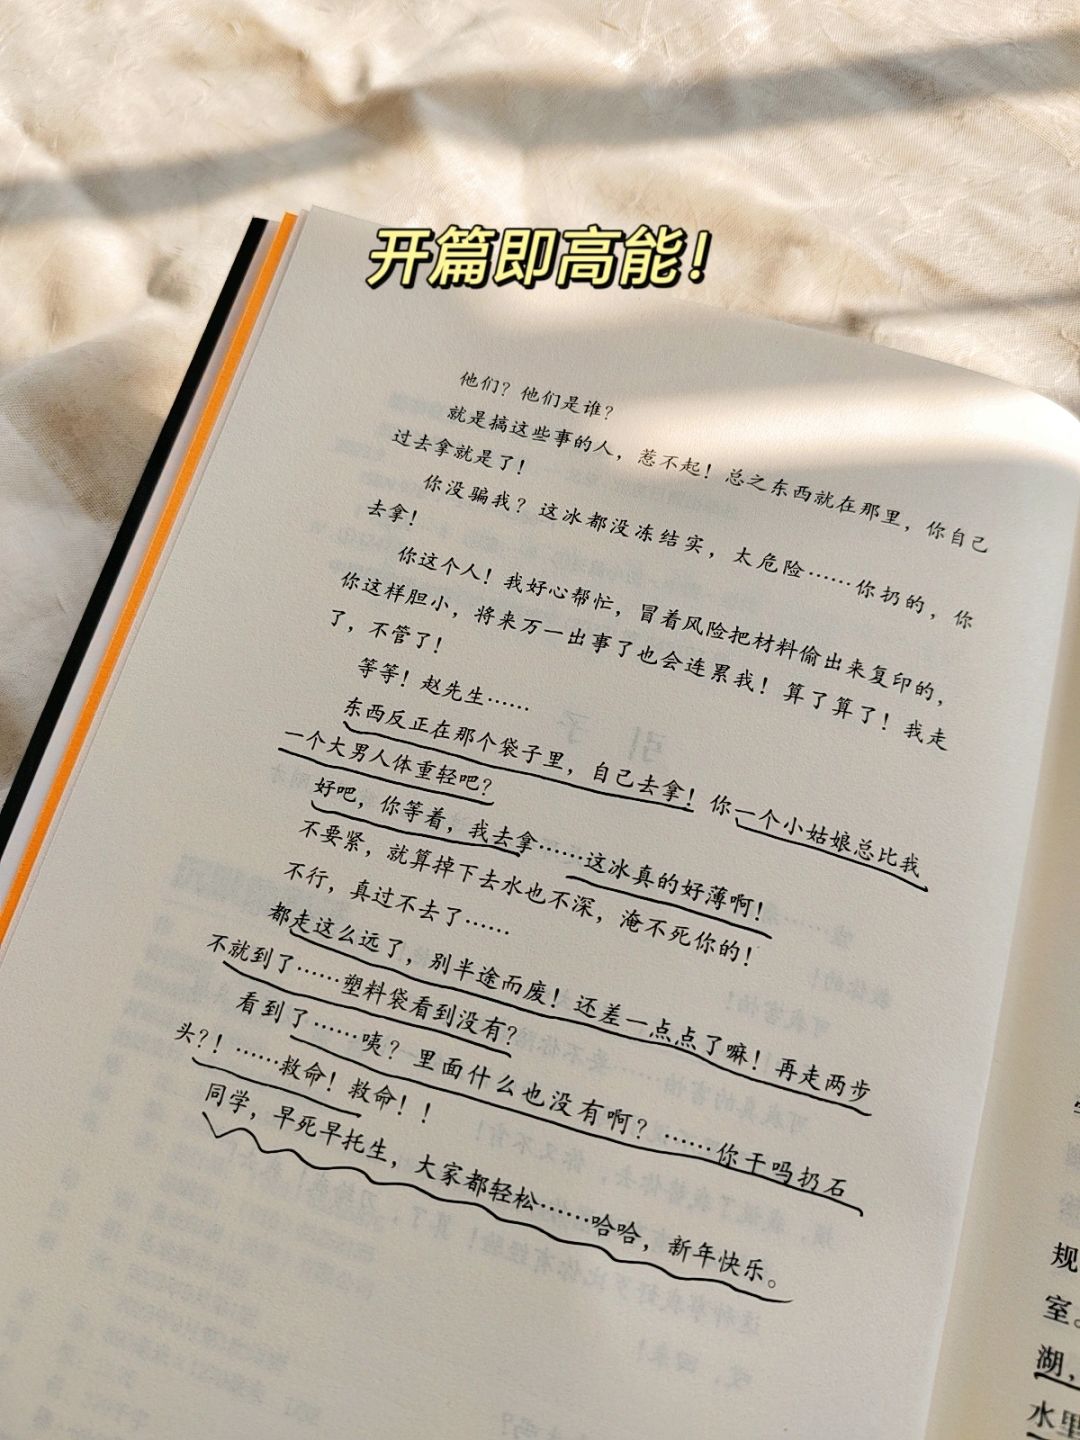 开篇即高能！
他们？他们是谁？
就是搞这些事的人，惹不起！总之东西就在那里，你自己
过去拿就是了！
你没骗我？这冰都没冻结实，太危险……你扔的，你
去拿！
你这个人！我好心帮忙，冒着风险把材料偷出来复印的，
你这样胆小，将来万一出事了也会连累我！算了算了！我走
了，不管了！
等等！赵先生……
东西反正在那个袋子里，自己去拿！你一个小姑娘总比我
一个大男人体重轻吧？
好吧，你等着，我去拿……这冰真的好薄啊！
不要紧，就算掉下去水也不深，淹不死你的！
不行，真过不去了……
都走这么远了，别半途而废！还差一点点了嘛！再走两步
不就到了……塑料袋看到没有？
看到了……咦？里面什么也没有啊？……你干吗扔石
头？！……救命！救命！！
同学，早死早托生，大家都轻松……哈哈，新年快乐。
规
室。
湖，
水里